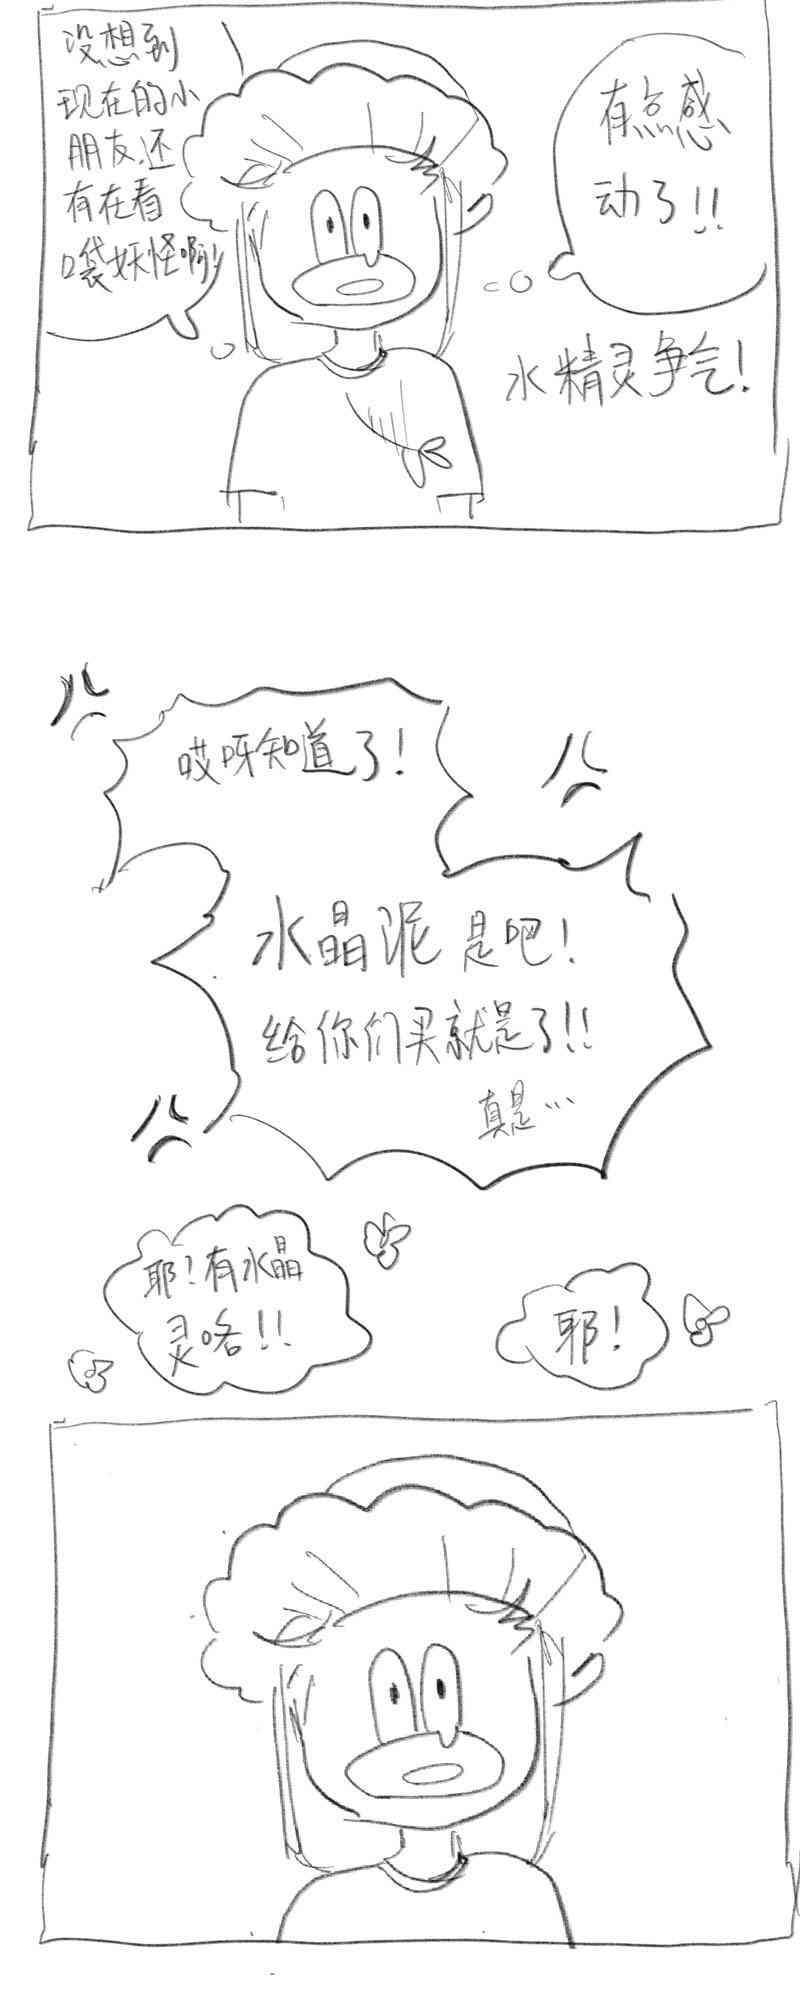 没想到
现在的小
朋友还
有在看
口袋妖怪啊!
有点感
动了!!
水精灵争气!
哎呀知道了!
水晶泥是吧!
给你们买就是了!!
真是…
耶!有水晶
灵咯!!
耶!